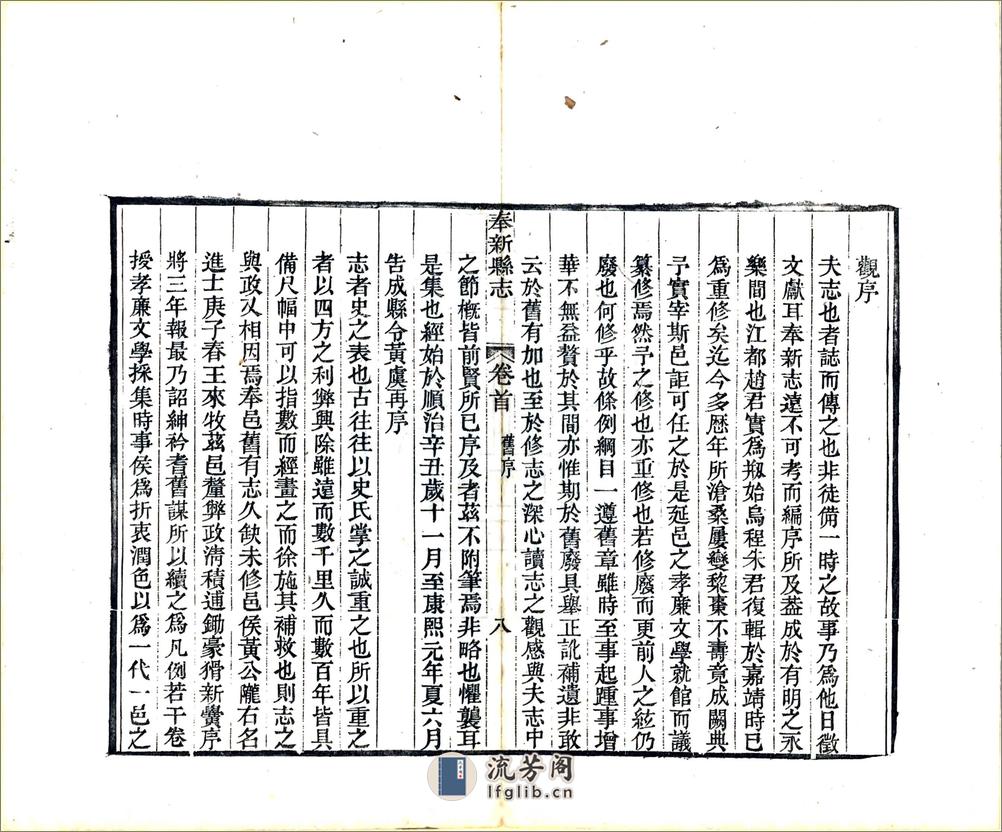 觀序
夫志也者誌而傳之也非徒備一時之故事乃爲他日徵
文獻耳奉新志遠不可考而編序所及葢成於有明之永
樂間也江都趙君實爲剏始烏程朱君復輯於嘉靖時已
爲重修矣迄今多歷年所滄桑屢變黎棗不壽竟成闕典
予實宰斯邑詎可任之於是延邑之孝廉文學就館而議
纂修焉然予之修也亦重修也若修廢而更前人之絃仍
廢也何修乎故條例綱目一遵舊章雖時至事起踵事增
華不無益贅於其間亦惟期於舊廢具舉正訛補遺非敢
云於舊有加也至於修志之深心讀志之觀感與夫志中
奉新縣志
卷首
舊序
八
之節槪皆前賢所已序及者茲不附筆焉非略也懼襲耳
是集也經始於順治辛丑歲十一月至康熙元年夏六月
告成縣令黃虞再序
志者史之表也古往往以史氏掌之誠重之也所以重之
者以四方之利弊興除雖遠而數千里久而數百年皆具
備尺幅中可以指數而經畫之而徐施其補救也則志之
與政又相因焉奉邑舊有志久缺未修邑侯黃公隴右名
進士庚子春王來牧茲邑釐弊政淸積逋鋤豪猾新黌序
將三年報最乃詔紳衿耆舊謀所以續之爲凡例若干卷
授孝廉文學採集時事侯爲折衷潤色以爲一代一邑之
流芳阁
lfglib.cn